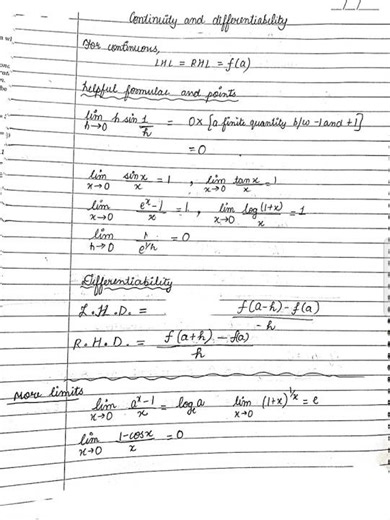 Continuity and differentiability
For continuous,
LHL = RHL = f(a)
helpful formulae and points
lim h→0 h sin 1/h = 0 × [a finite quantity b/w -1 and +1]
= 0
lim x→0 sinx/x = 1 , lim x→0 tanx/x = 1
lim x→0 e^x-1/x = 1 , lim x→0 log(1+x)/x = 1
lim h→0 1/e^1/h = 0
Differentiability
L.H.D. = f(a-h) - f(a)/-h
R.H.D. = f(a+h) - f(a)/h
More limits
lim x→0 a^x-1/x = log_e a lim x→0 (1+x)^1/x = e
lim x→0 1-cosx/x = 0